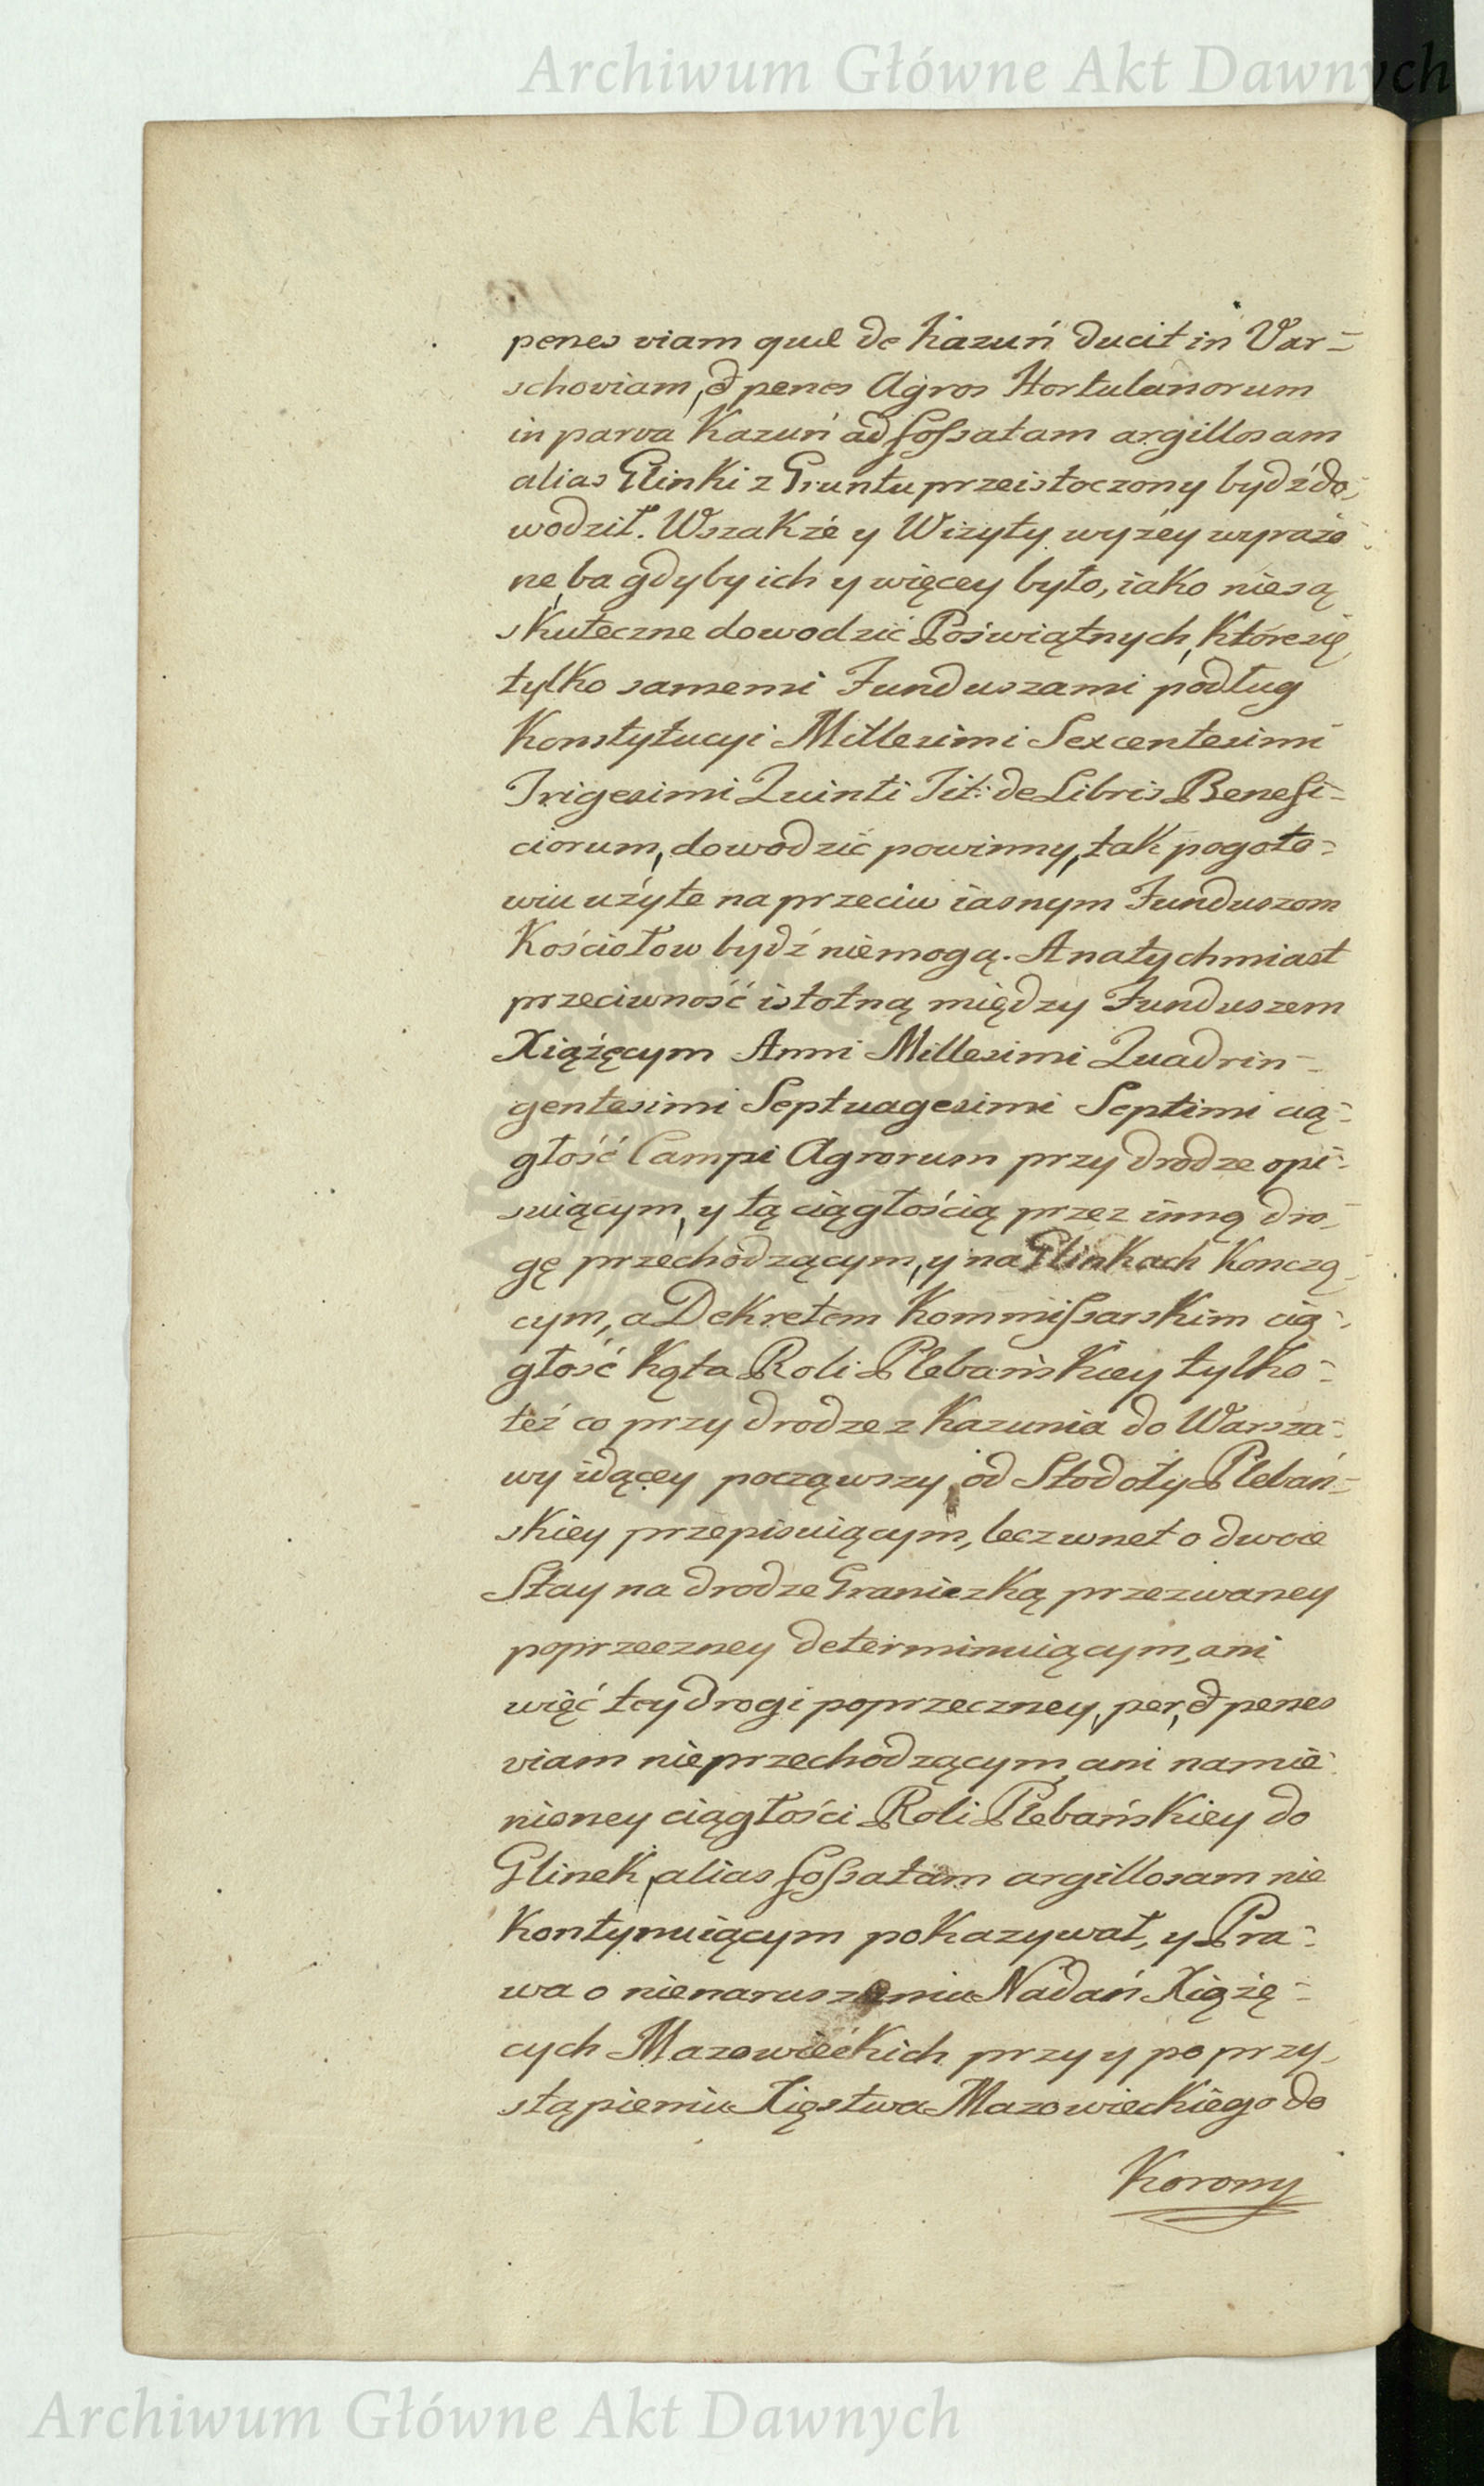 Archiwum Główne Akt Dawnych
penes viam quæ de Kazuń ducit in Var=
schoviam, & penes Agros Hortulanorum
in parva Kazuń ad fossatam argillosam
alias Glinki z Gruntu przeistoczony bydź do=
wodził. Wszakże y Wizyty wyżey wyrażo=
ne, ba gdyby ich y więcey było, iako nie są
skuteczne dowodzić Poświątnych, które się
tylko samemi Funduszami podług
Konstytucyi Millesimi Sexcentesimi
Trigesimi Quinti Tit: de Libris Benefi=
ciorum, dowodzić powinny, tak pogoto=
wiu użyte na przeciw iasnym Funduszom
Kościołow bydź niemogą. A natychmiast
przeciwność istotną między Funduszem
Xiążęcym Anni Millesimi Quadrin=
gentesimi Septuagesimi Septimi cią=
głość Campi Agrorum przy drodze opi=
suiącym, y tą ciągłością przez inną dro=
gę przechodzącym, y na Glinkach kończą=
cym, a Dekretem Kommissarskim cią=
głość kąta Roli Plebańskiey tylko=
też co przy drodze z Kazunia do Warsza=
wy idącey począwszy od Stodoły Plebań=
skiey przepisuiącym, lecz wnet o dwoie
Stay na drodze Graniczką przezwaney
poprzeczney determinuiącym, ani
więć tey drogi poprzeczney, per, & penes
viam nieprzechodzącym, ani namie=
nioney ciągłości Roli Plebańskiey do
Glinek, alias fossatam argillosam nie
kontynuiącym pokazywał, y Pra=
wa o nienaruszeniu Nadań Xiążę=
cych Mazowieckich przy y po przy=
stąpieniu Xięstwa Mazowieckiego do
Korony
Archiwum Główne Akt Dawnych